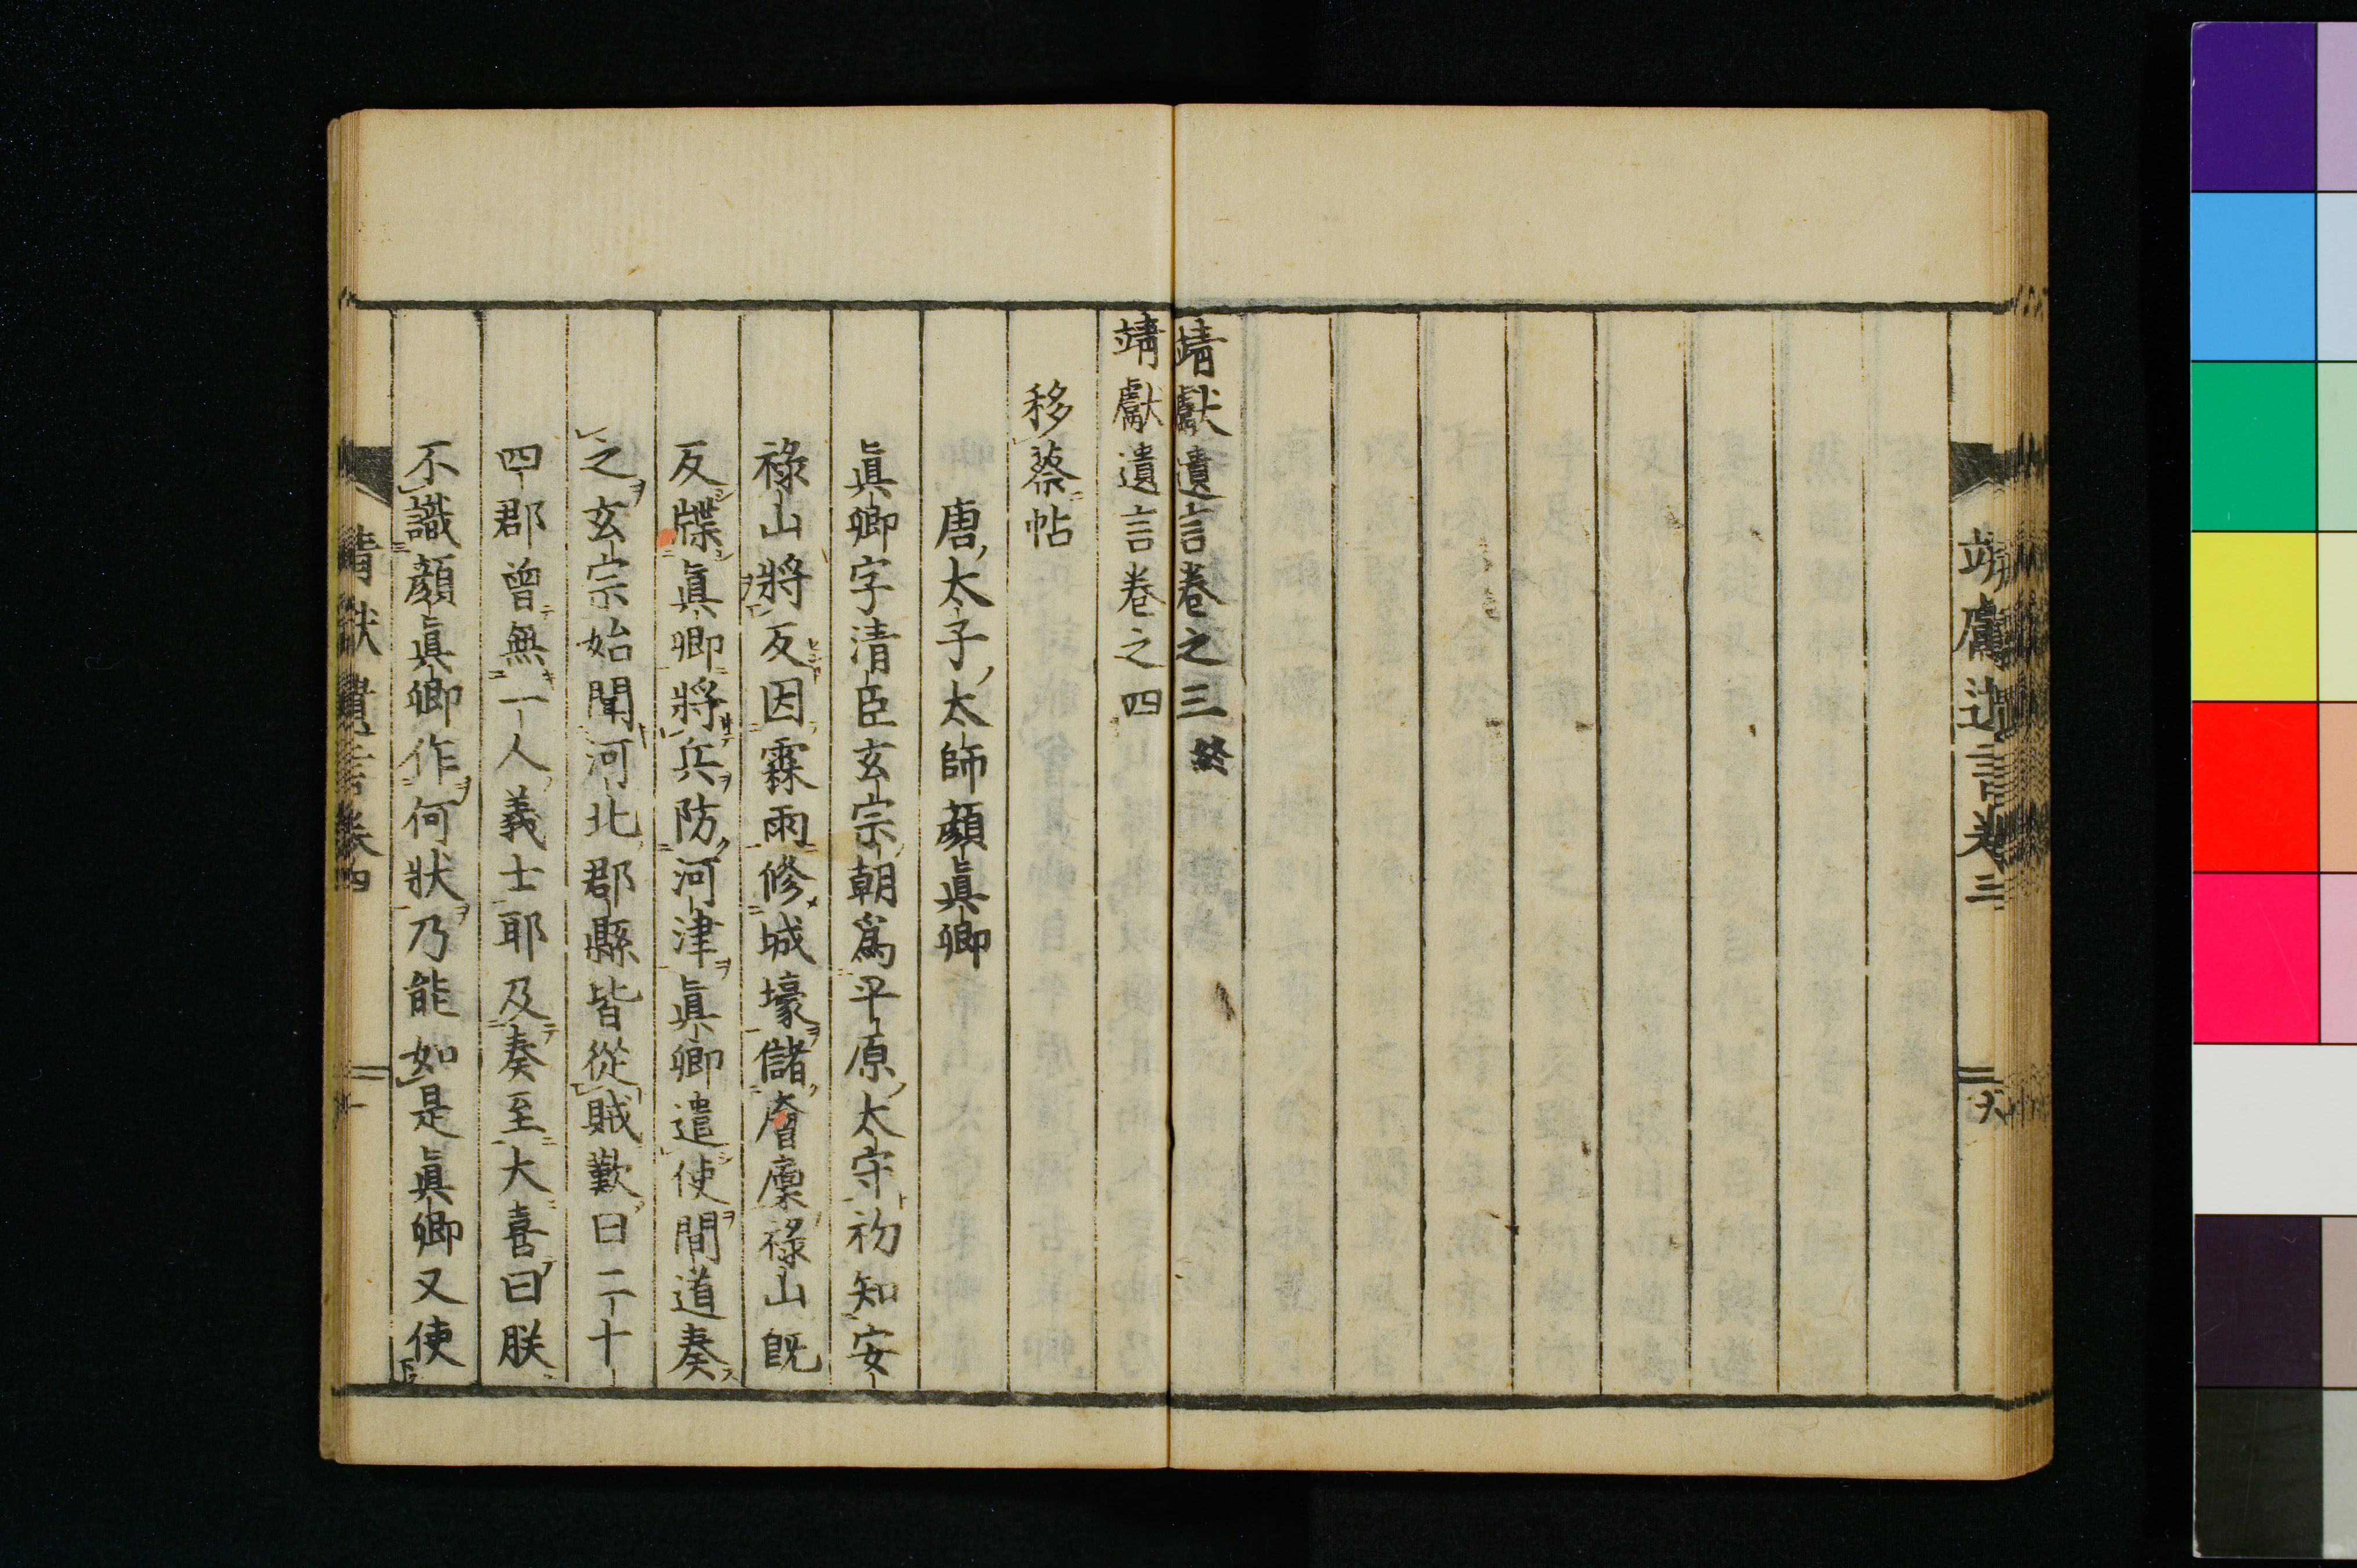 靖獻遺言卷三
靖獻遺言卷之三終
靖獻遺言卷之四
移蔡帖
唐太子太師顏眞卿
眞卿字清臣玄宗朝爲平原太守初知安
祿山將反因霖雨修城壕儲廥廩祿山既
反牒眞卿將兵防河津眞卿遣使間道奏
之玄宗始聞河北郡縣皆從賊歎曰二十
四郡曾無一人義士耶及奏至大喜曰朕
不識顏眞卿作何狀乃能如是眞卿又使
靖獻遺言卷四